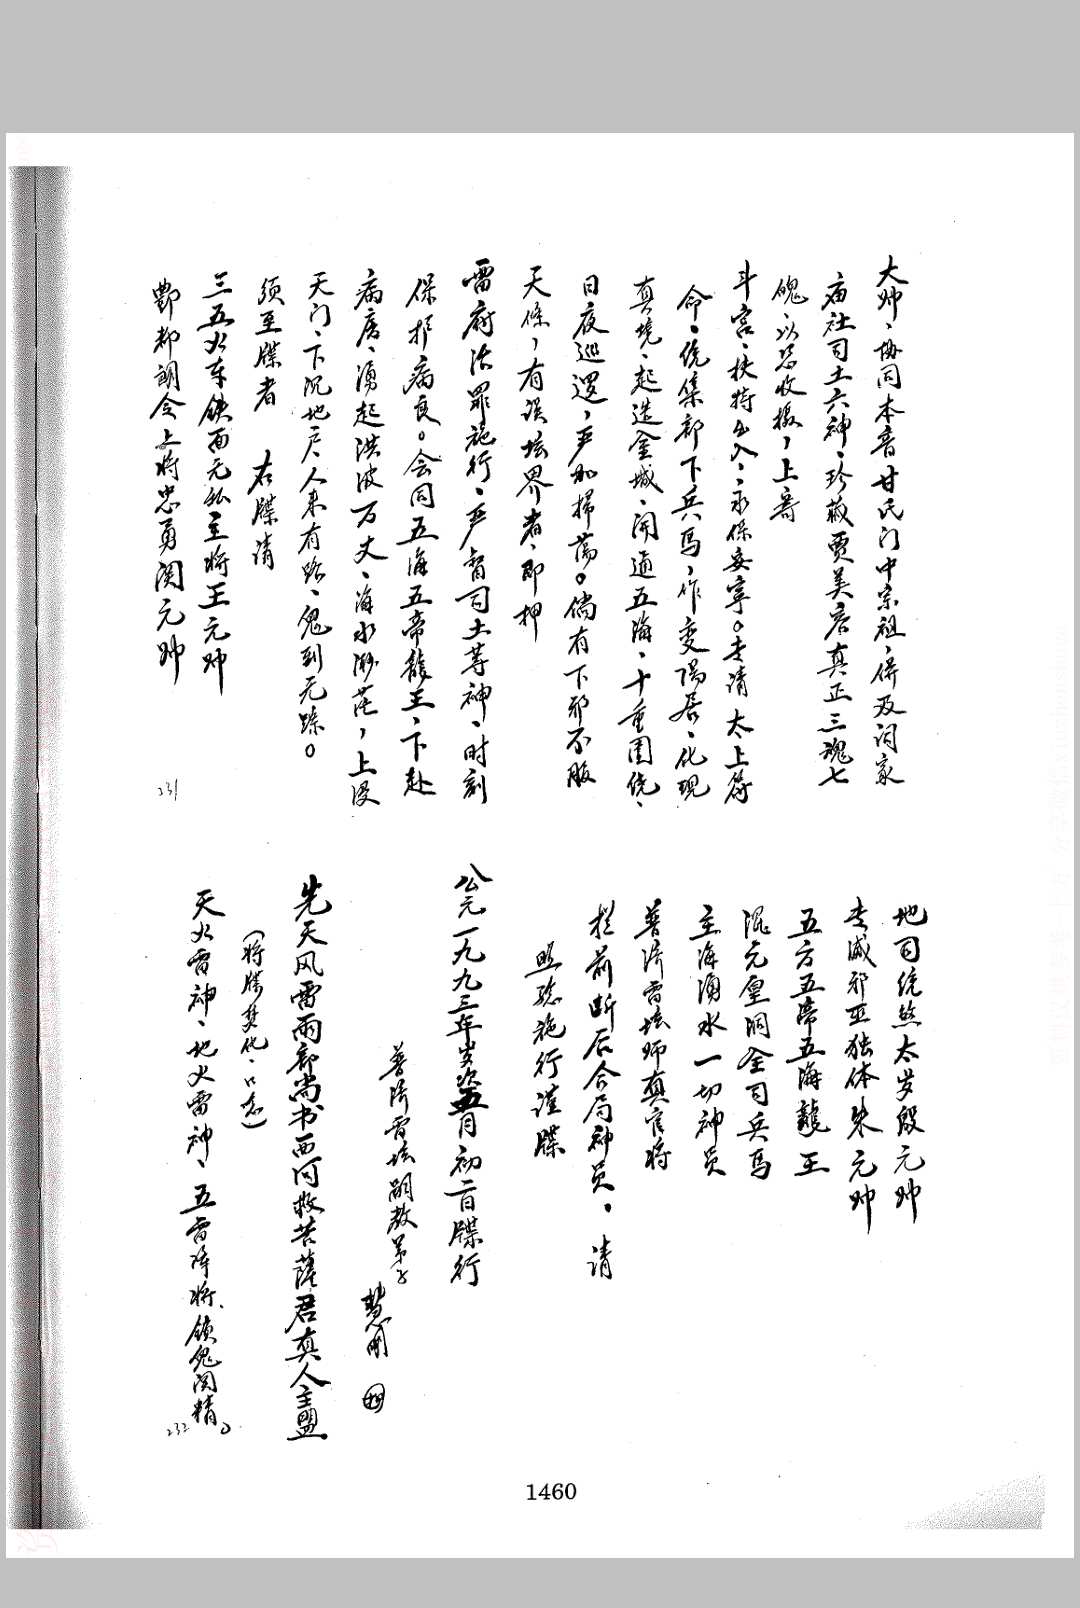 大帅、协同本音甘氏门中宗祖、併及词家
庙社司土六神、珍藏贾美店真正三魂七
魄、以爲收撮，上奇
斗宫、扶持出入、永保安宁。专请太上符
命、统集部下兵马，作变阳居、化现
真境、起造金城、闸通五海、十重围绕、
日夜巡逻，严加掃荡。倘有下邪不服
天條，有误坛界者、即押
雷府治罪施行、严督司土等神、时刻
保护病良。会同五海五帝龍王、下赴
病店、湧起洪波万丈、海水渺茫，上浸
天门、下沉地户、人来有路、鬼到无踪。
须至牒者 右牒请
三五火车铁面无私主将王元帅
酆都朗令上将忠勇関元帅
231
地司统煞太岁殷元帅
专滅邪巫独体朱元帅
五方五帝五海龍王
混元皇洞全司兵马
主海湧水一切神员
普济雷坛师真官将
拦前断后合局神员，请
照验施行谨牒
公元一九九三年岁次五月初二日牒行
普济雷坛嗣教弟子
先天风雷雨部尚书西河救苦薩君真人主盟
(将牒焚化、口念)
天火雷神、地火雷神、五雷降将、锁鬼関精。
232
1460